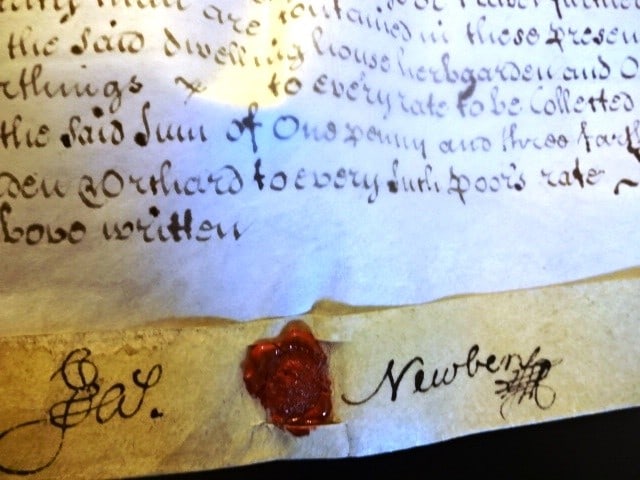 are contained in these presen
the said dwelling house herbgarden and O
rthings to every rate to be Collected
the said Sum of One penny and three fart
den & Orthard to every such poor's rate
bove written
Jas. Newbery